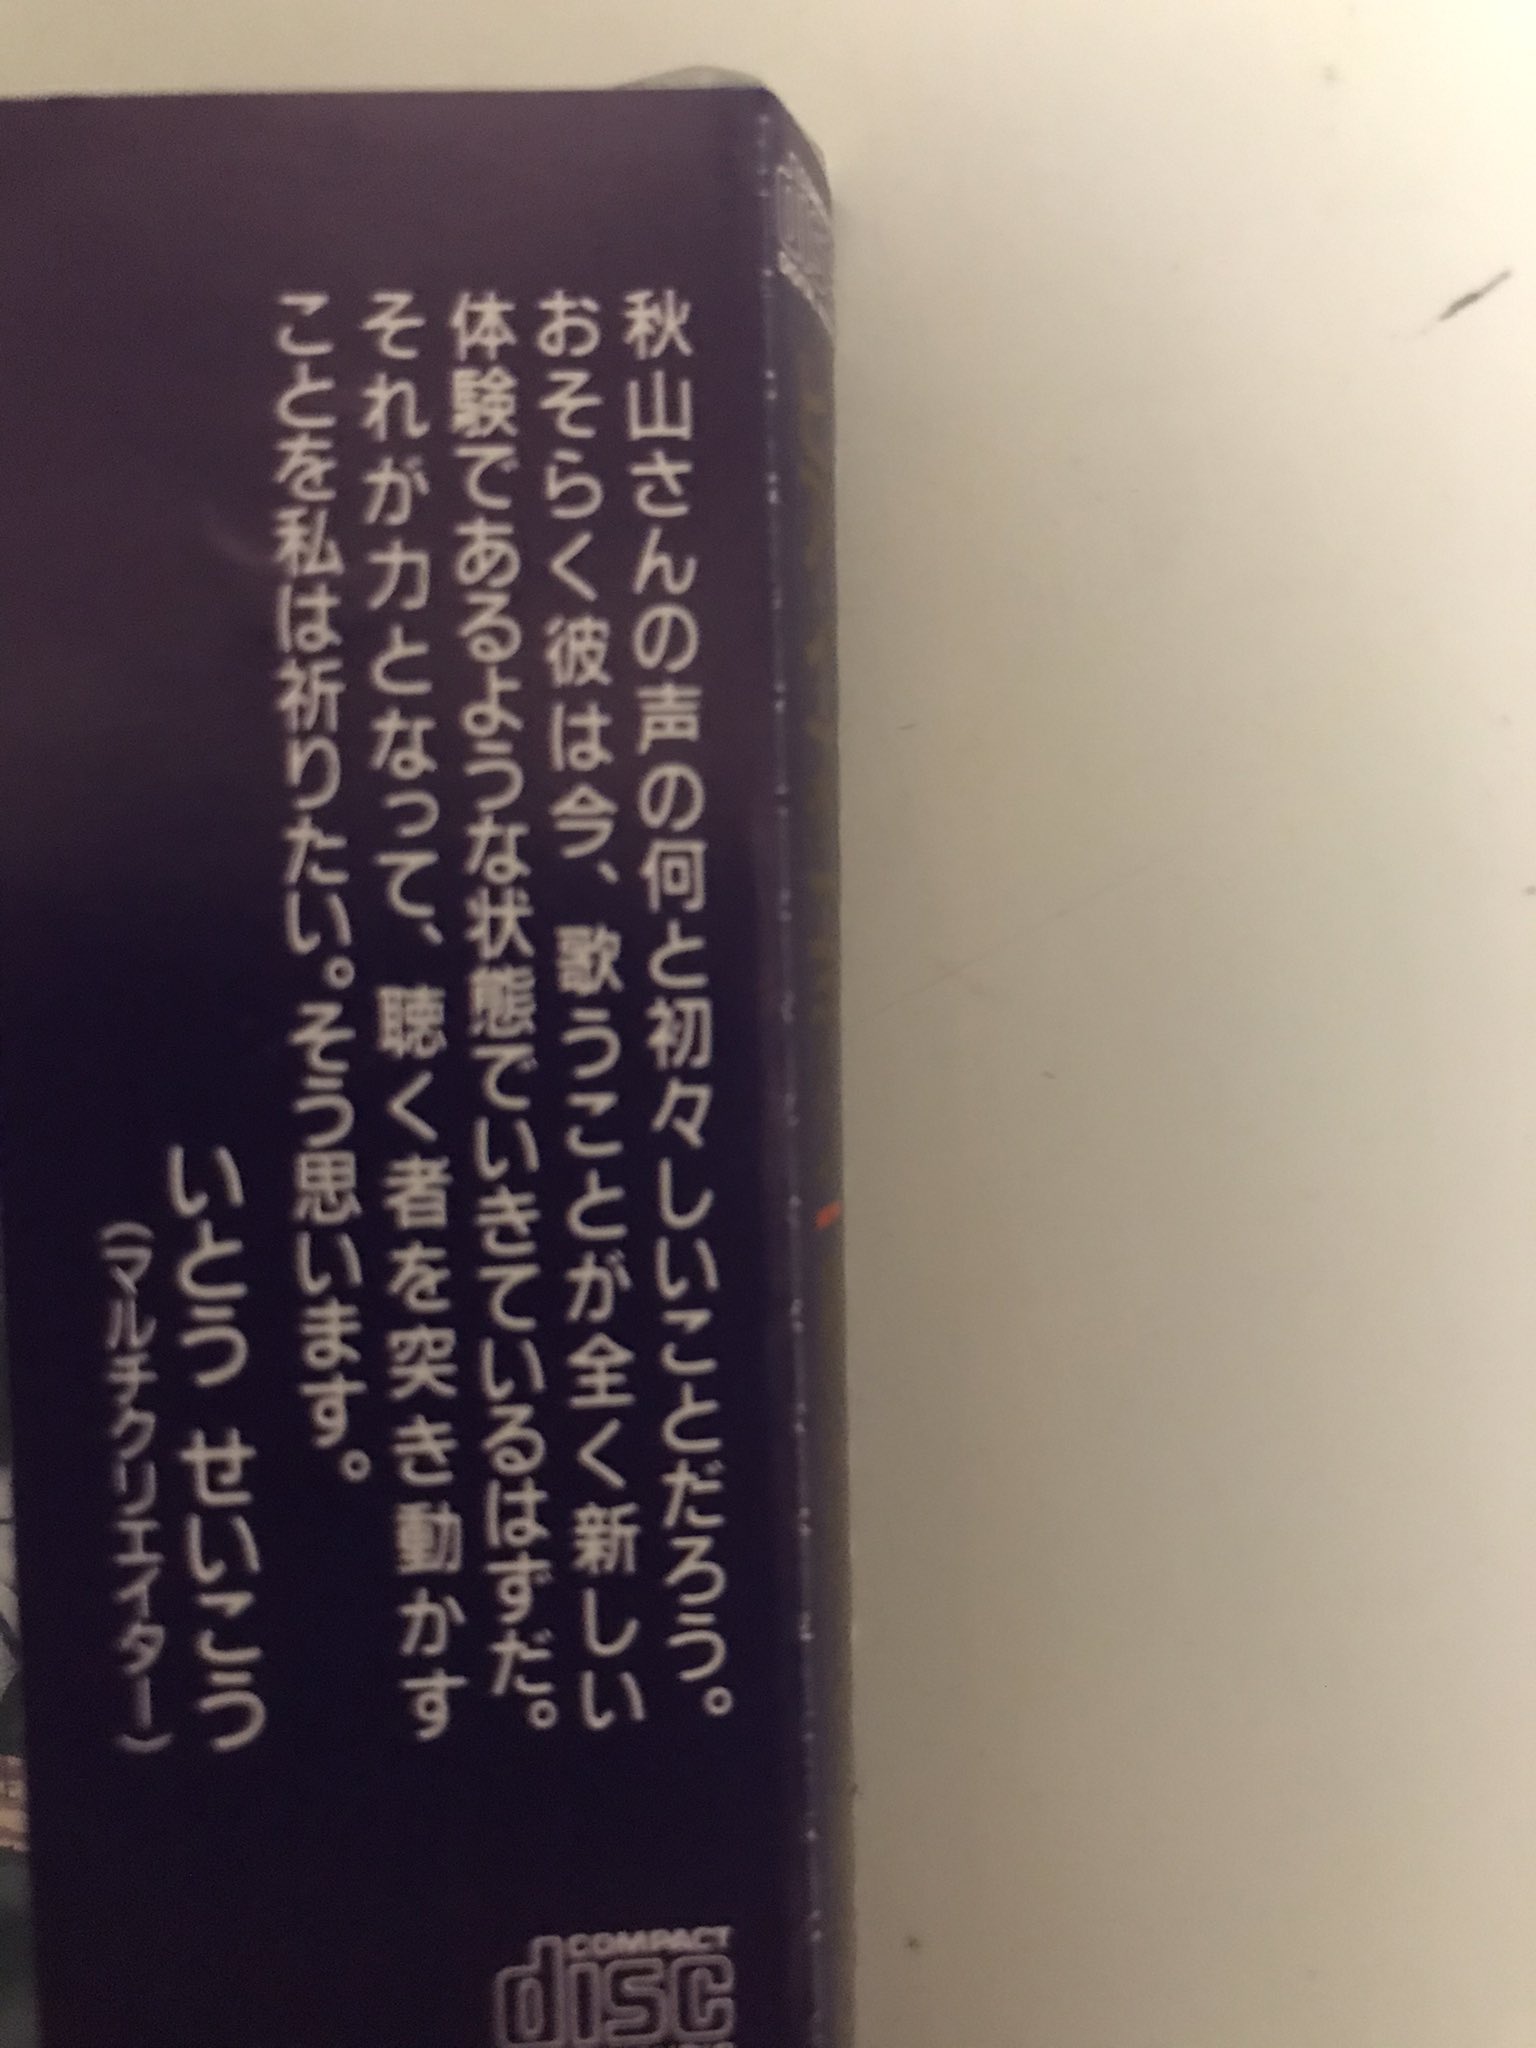 秋山さんの声の何と初々しいことだろう。
おそらく彼は今、歌うことが全く新しい
体験であるような状態でいきているはずだ。
それが力となって、聴く者を突き動かす
ことを私は祈りたい。そう思います。
いとう せいこう
（マルチクリエイター）
COMPACT
disc